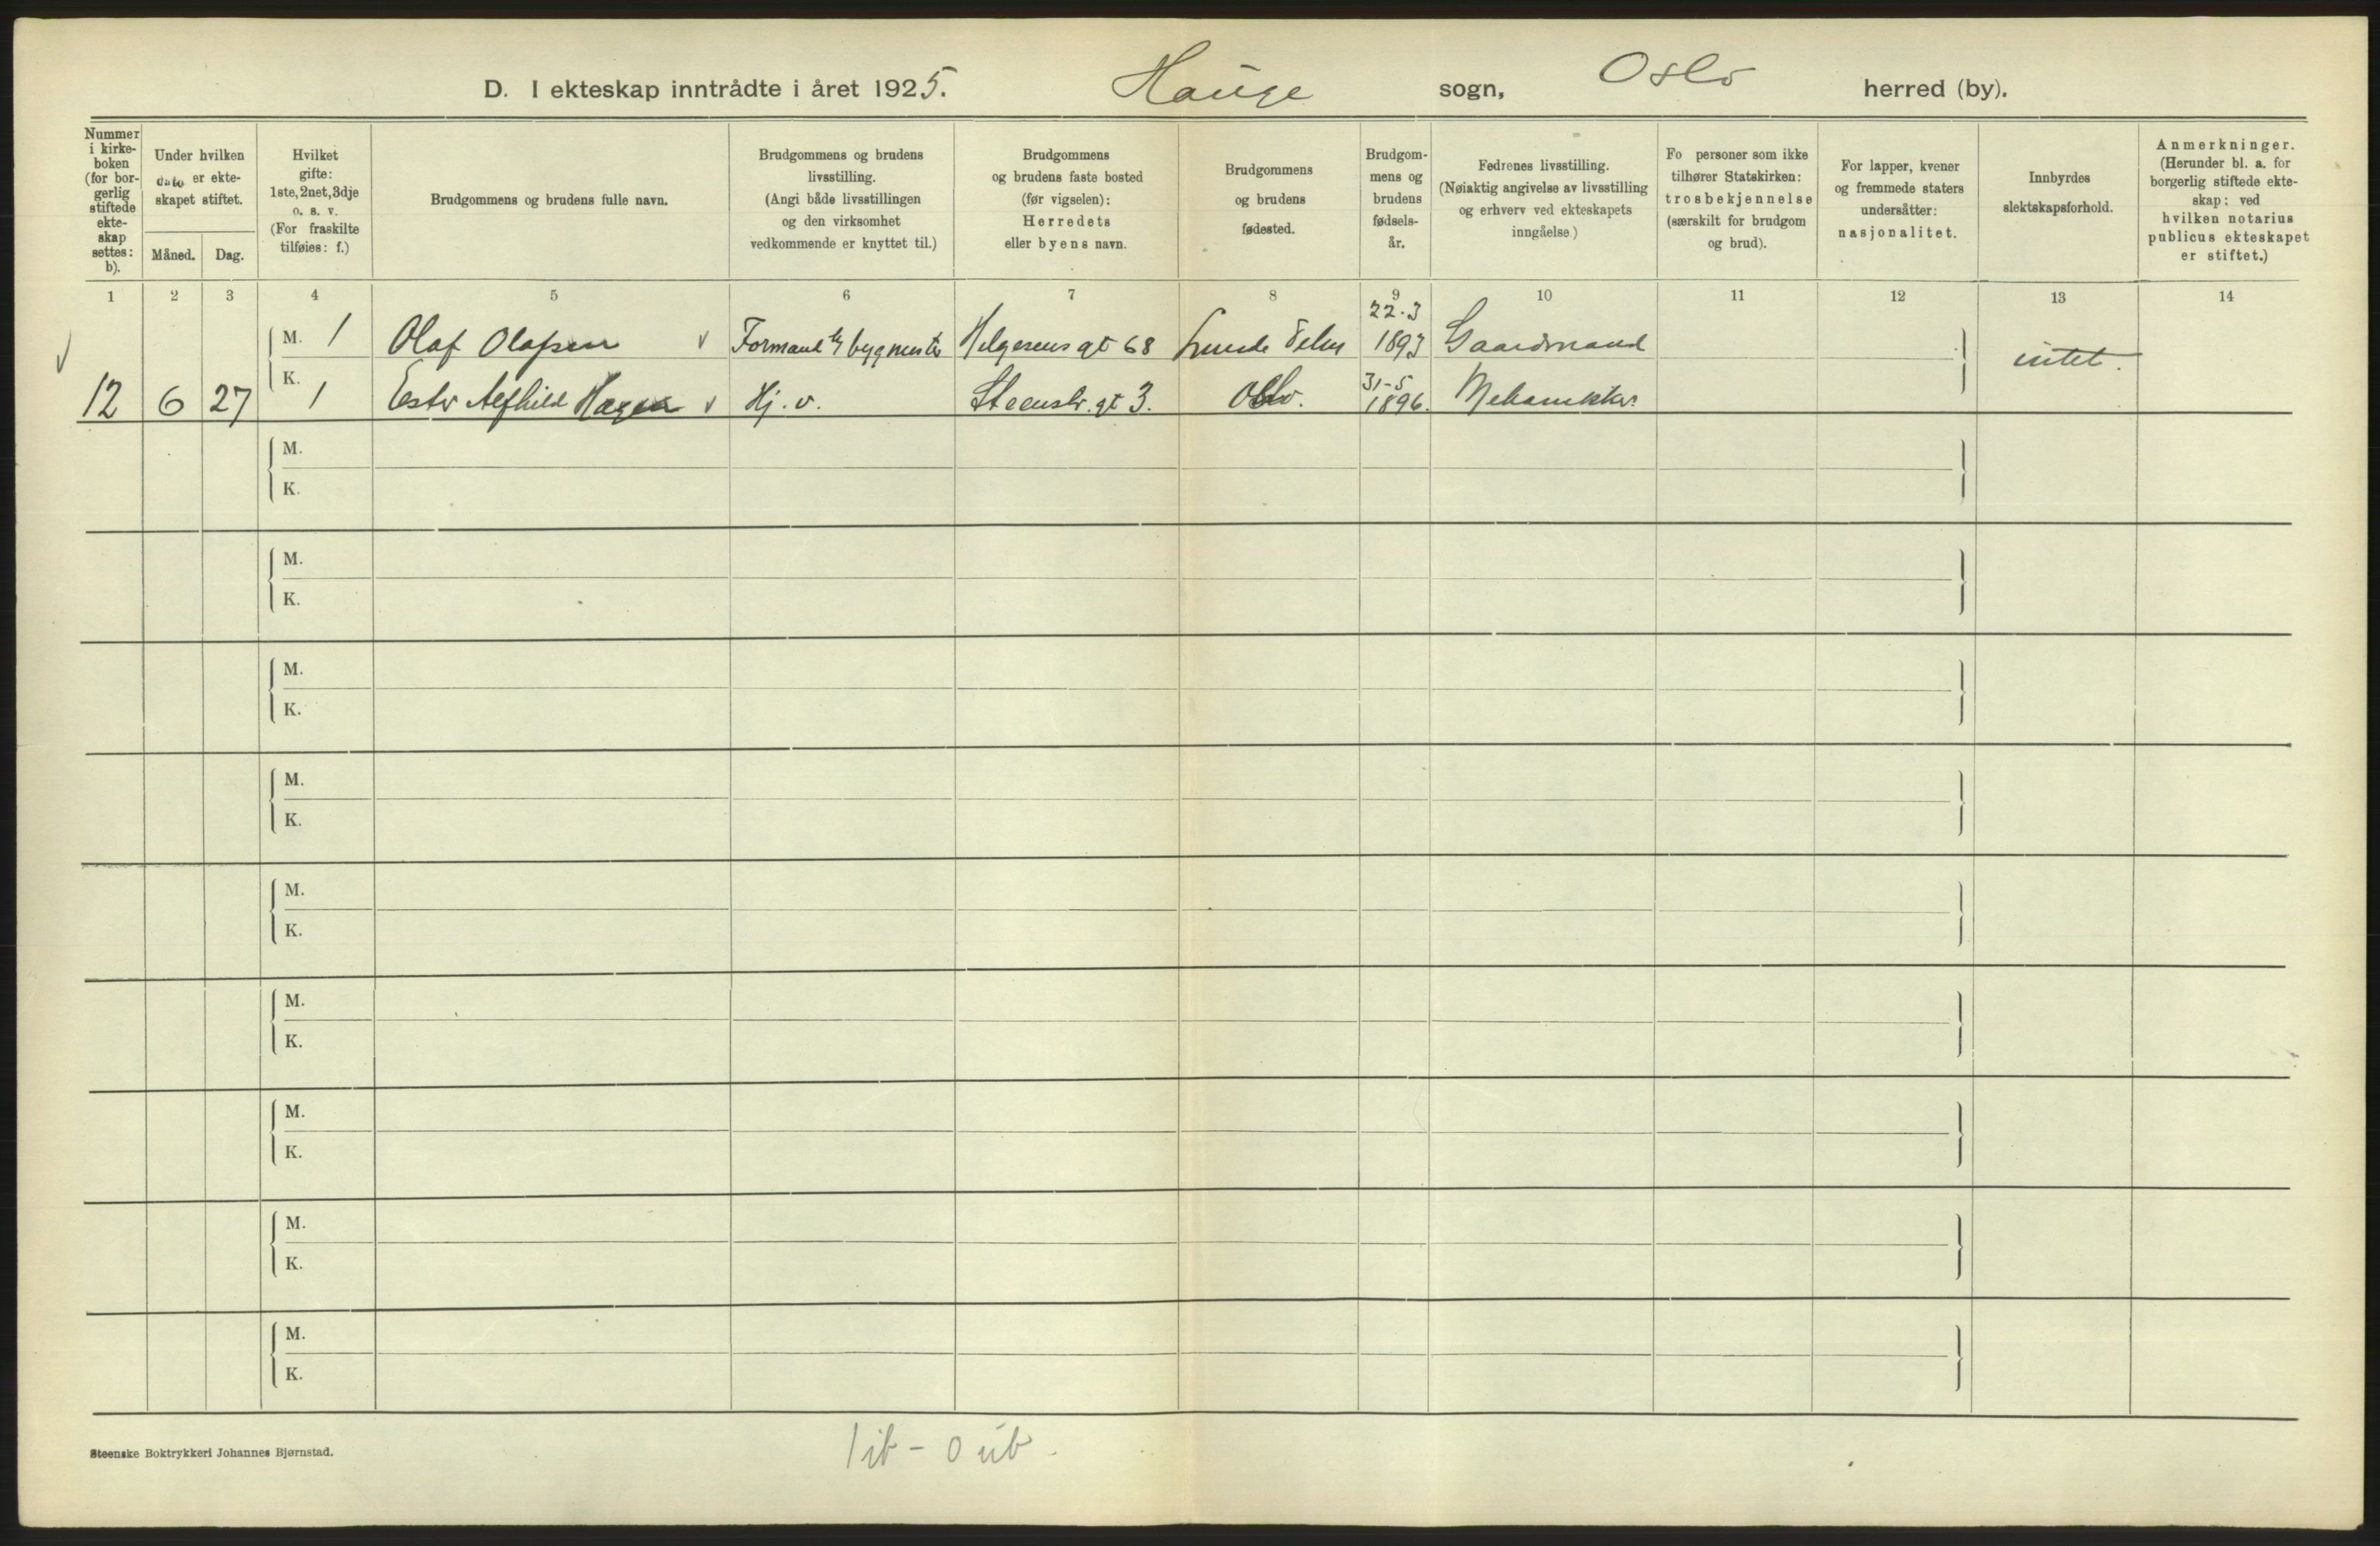 D. I ekteskap inntrådte i året 1925. Hauge sogn, Oslo herred (by).
Nummer i kirke-boken (for bor-gerlig stiftede ekte-skap settes: b).
Under hvilken dato er ekte-skapet stiftet.
Måned. Dag.
Hvilket gifte: 1ste, 2net, 3dje o. s. v. (For fraskilte tilføies: f.)
Brudgommens og brudens fulle navn.
Brudgommens og brudens livsstilling. (Angi både livsstillingen og den virksomhet vedkommende er knyttet til.)
Brudgommens og brudens faste bosted (før vigselen): Herredets eller byens navn.
Brudgommens og brudens fødested.
Brudgom-mens og brudens fødsels-år.
Fedrenes livsstilling. (Nøiaktig angivelse av livsstilling og erhverv ved ekteskapets inngåelse.)
Fo personer som ikke tilhører Statskirken: trosbekjennelse (særskilt for brudgom og brud).
For lapper, kvener og fremmede staters undersåtter: nasjonalitet.
Innbyrdes slektskapsforhold.
Anmerkninger. (Herunder bl. a. for borgerlig stiftede ekte-skap: ved hvilken notarius publicus ekteskapet er stiftet.)
1 2 3 4 5 6 7 8 9 10 11 12 13 14
M. 1 Olaf Olafsen v Formand bygmester Helgesens gt 68 Lunde Telm 22.3 1893 Gaardmand intet.
12 6 27 K. 1 Ester Alfhild Hagen v Hj. v. Steenstr. gt 3. Oslo. 31-5 1896. Mekaniker
M.
K.
M.
K.
M.
K.
M.
K.
M.
K.
M.
K.
M.
K.
M.
K.
M.
K.
Steenske Boktrykkeri Johannes Bjørnstad.
1 ib - 0 ub